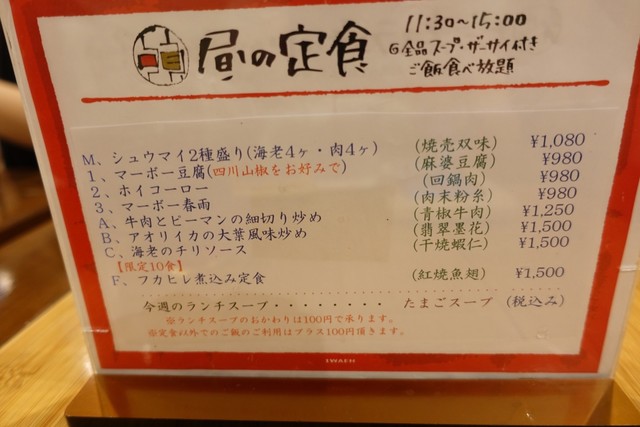 昼の定食
11:30～15:00
全品スープ・ザーサイ付き
ご飯食べ放題
M、シュウマイ2種盛り(海老4ヶ・肉4ヶ) (焼売双味) ¥1,080
1、マーボー豆腐(四川山椒をお好みで) (麻婆豆腐) ¥980
2、ホイコーロー (回鍋肉) ¥980
3、マーボー春雨 (肉末粉糸) ¥980
A、牛肉とピーマンの細切り炒め (青椒牛肉) ¥1,250
B、アオリイカの大葉風味炒め (翡翠墨花) ¥1,500
C、海老のチリソース (干焼蝦仁) ¥1,500
【限定10食】
F、フカヒレ煮込み定食 (紅焼魚翅) ¥1,500
今週のランチスープ・・・・・・・・ たまごスープ (税込み)
※ランチスープのおかわりは100円で承ります。
※定食以外でのご飯のご利用はプラス100円頂きます。